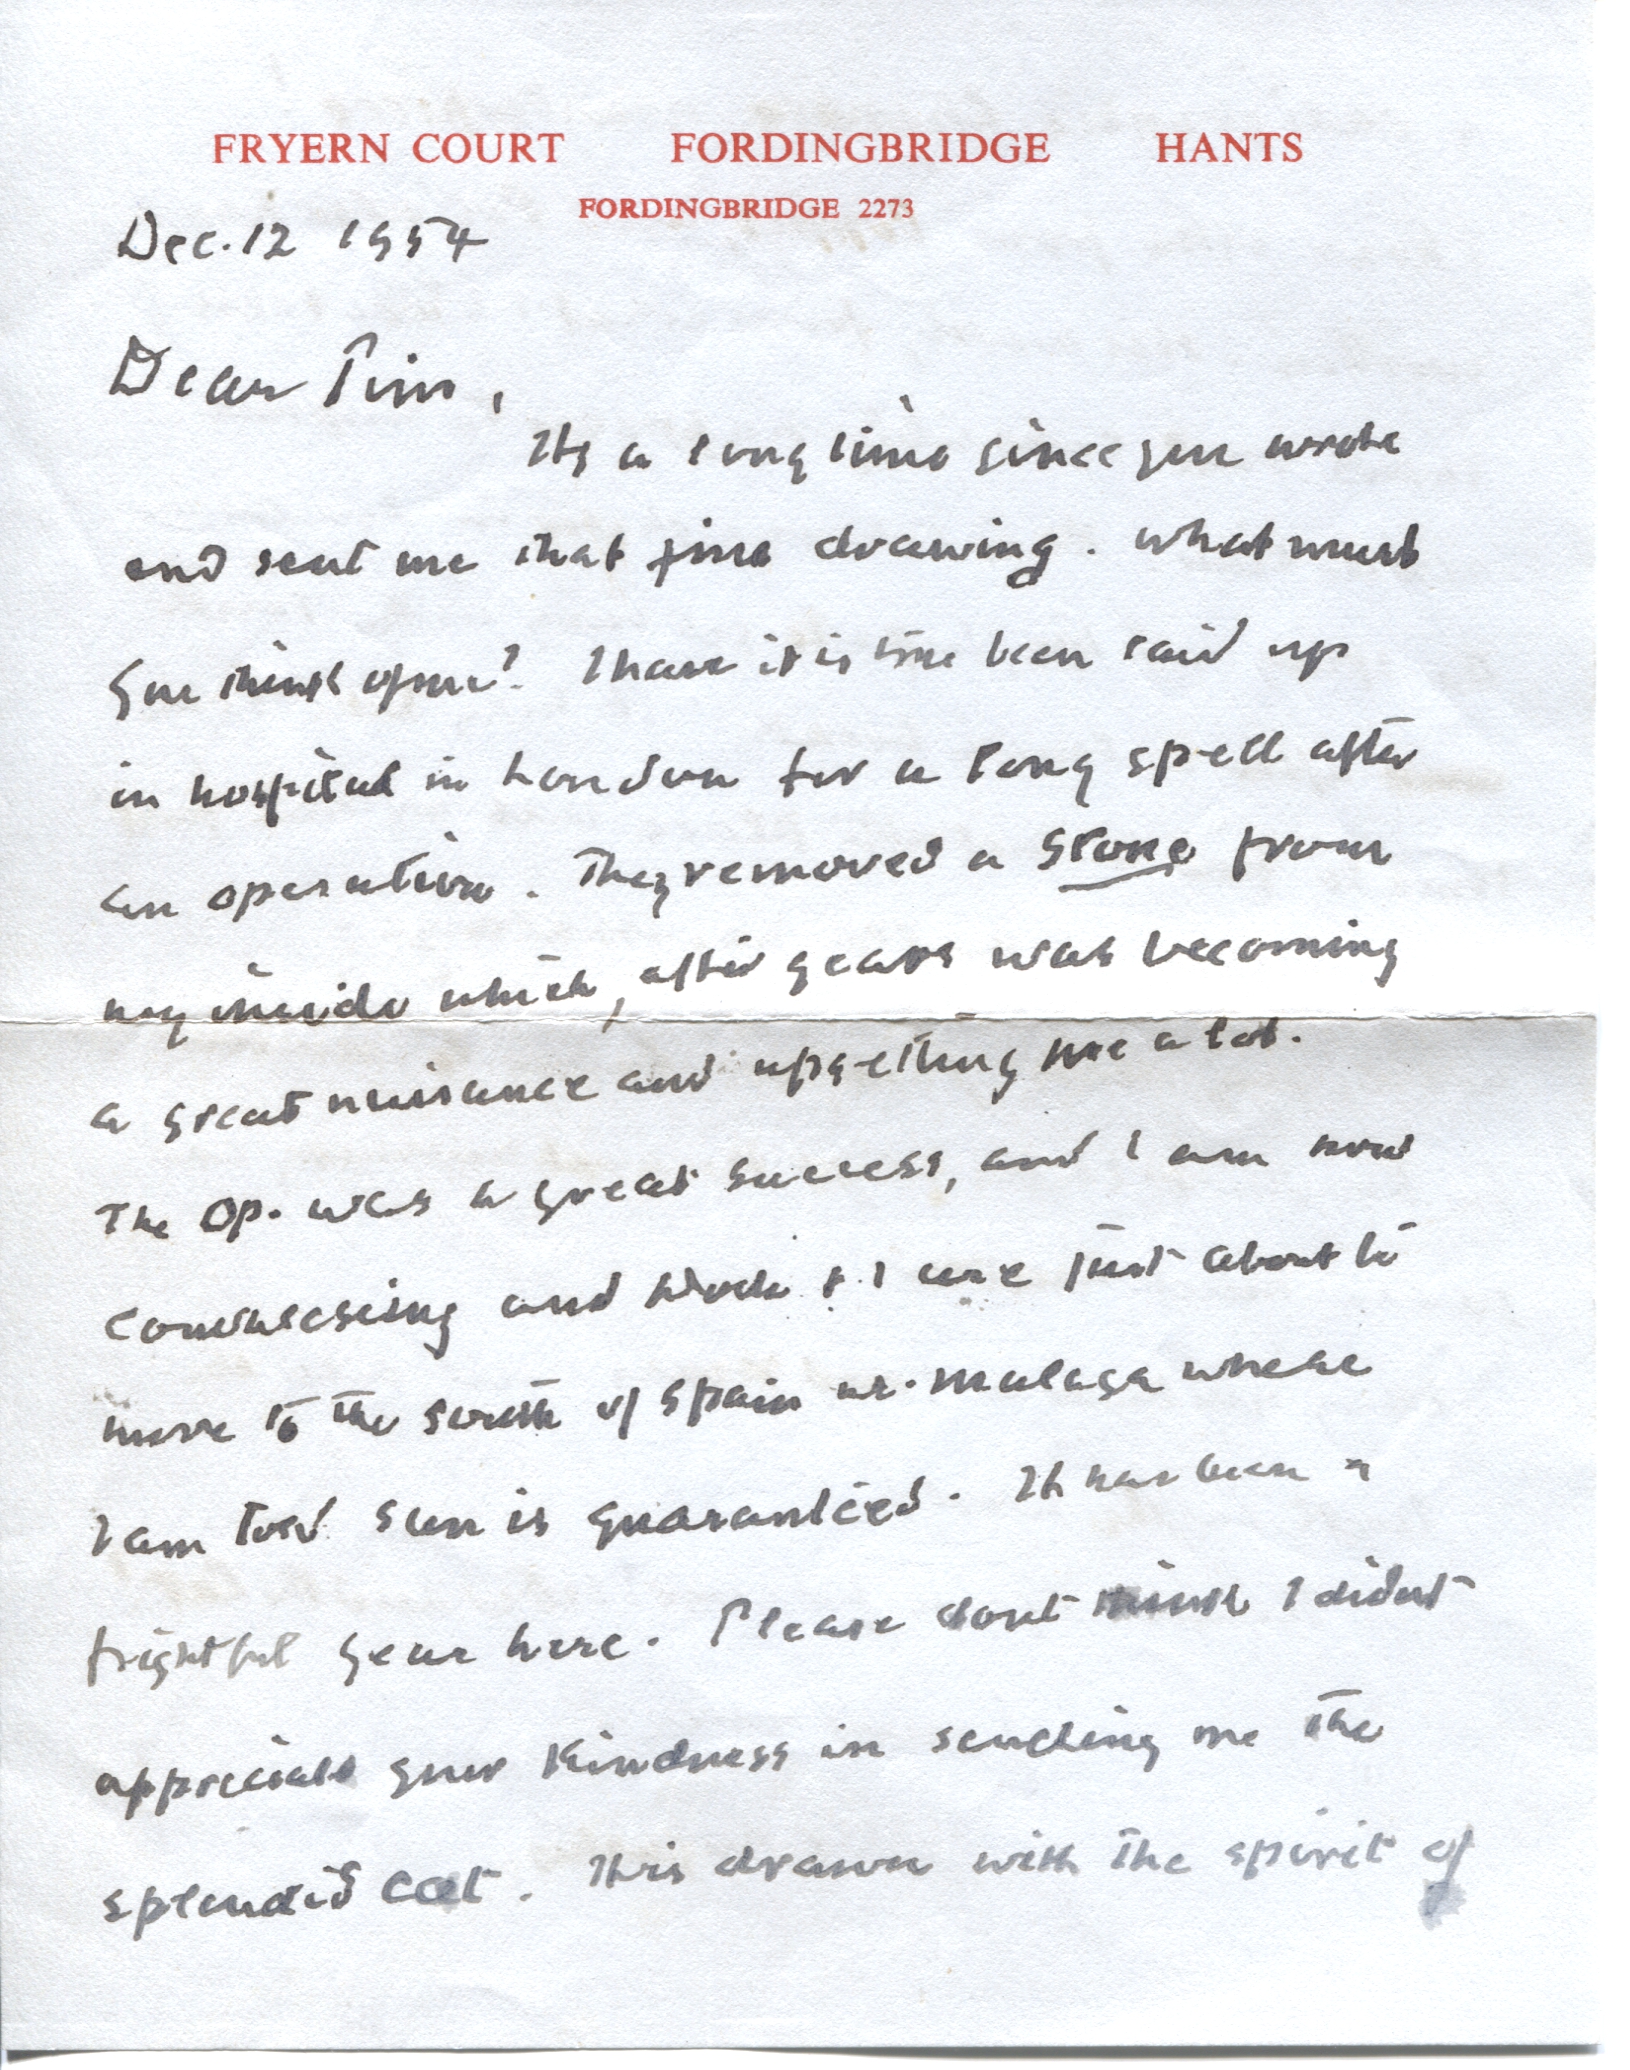 FRYERN COURT FORDINGBRIDGE HANTS
FORDINGBRIDGE 2273
Dec. 12 1954
Dear Tim,
Its a long time since you wrote
and sent me that fine drawing. What must
you think of me? I have it is true been laid up
in hospital in London for a long spell after
an operation. They removed a stone from
my inside which, after years was becoming
a great nuisance and upsetting me a lot.
The Op. was a great success, and I am now
convalescing and Dodo & I are just about to
move to the south of Spain nr. Malaga where
I am told sun is guaranteed. It has been a
frightful year here. Please dont think I didnt
appreciate your kindness in sending me the
splendid cat. It is drawn with the spirit of